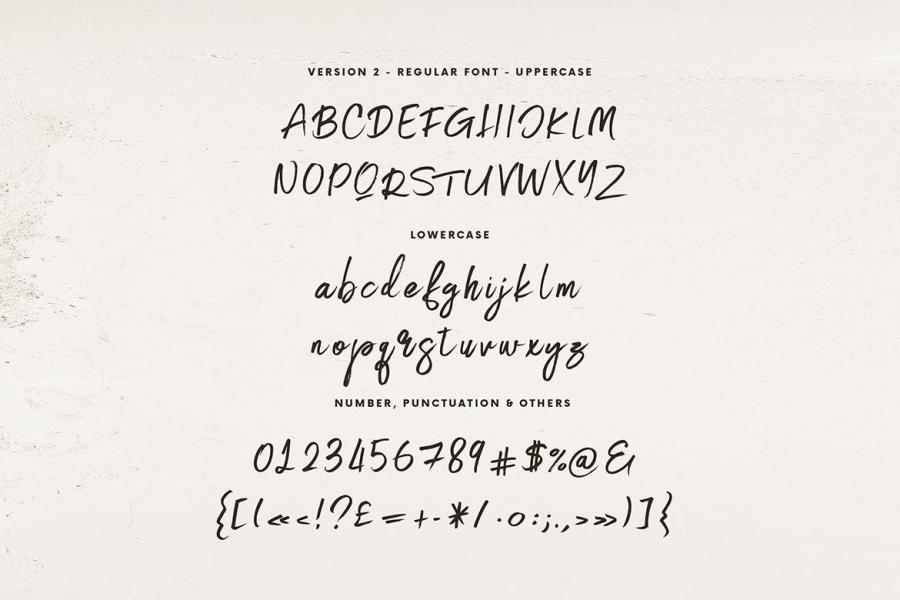 VERSION 2 - REGULAR FONT - UPPERCASE
ABCDEFGHIJKLM
NOPQRSTUVWXYZ
LOWERCASE
abcdefghijklm
nopqrstuvwxyz
NUMBER, PUNCTUATION & OTHERS
0123456789#$%@&
{[(«<!?£=+-*/·o:;.,>»)]}